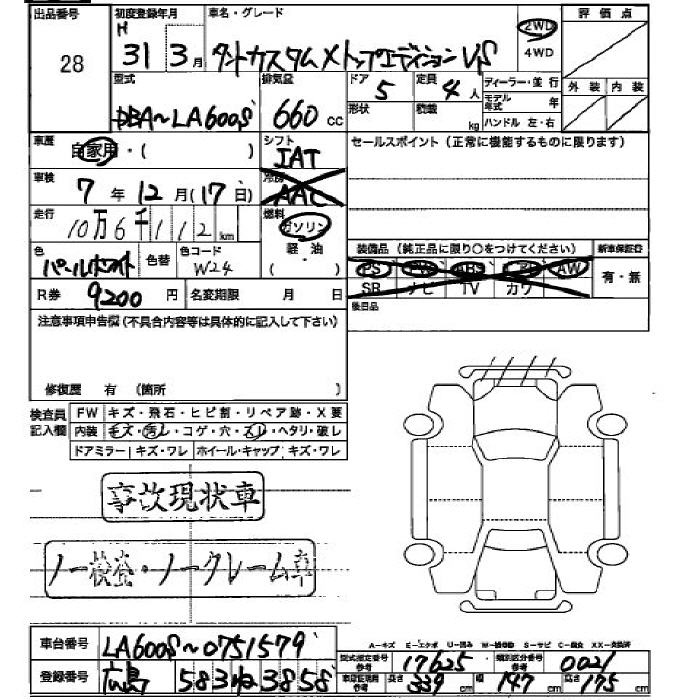 出品番号 初度登録年月 車名・グレード 評価点
28 H 31年 3月 タントカスタム X トップエディション VS 2WD 4WD
型式 排気量 ドア 定員 ディーラー・並行 外装 内装
DBA~LA600S 660cc 5 4人 モデル年式 年
形状 積載 kg ハンドル 左・右
車歴 自家用・( ) シフト IAT セールスポイント(正常に機能するものに限ります)
車検 7年 12月(17日) 冷房 AAC
走行 10万6千112km 燃料 ガソリン
軽油 ( )
色 パールホワイト 色替 色コード W24
装備品(純正品に限り〇をつけてください) 新車保証書
PS PW ABS AW
SR ナビ TV カワ 有・無
R券 9200円 名変期限 月 日 後日品
注意事項申告欄(不具合内容等は具体的に記入して下さい)
修復歴 有 (箇所 )
検査員記入欄 FW キズ・飛石・ヒビ割・リペア跡・X要
内装 キズ・汚レ・コゲ・穴・スレ・ヘタリ・破レ
ドアミラー キズ・ワレ ホイール・キャップ キズ・ワレ
事故現状車
ノー検査・ノークレーム車
A-キズ E-エクボ U-凹み W-補修跡 S-サビ C-腐食 XX-交換済
車台番号 LA600S~0751579
型式指定番号 参考 17625 類別区分番号 参考 0021
登録番号 広島 583 ね 3858
車庫証明用 参考 長さ 339cm 幅 147cm 高さ 175cm